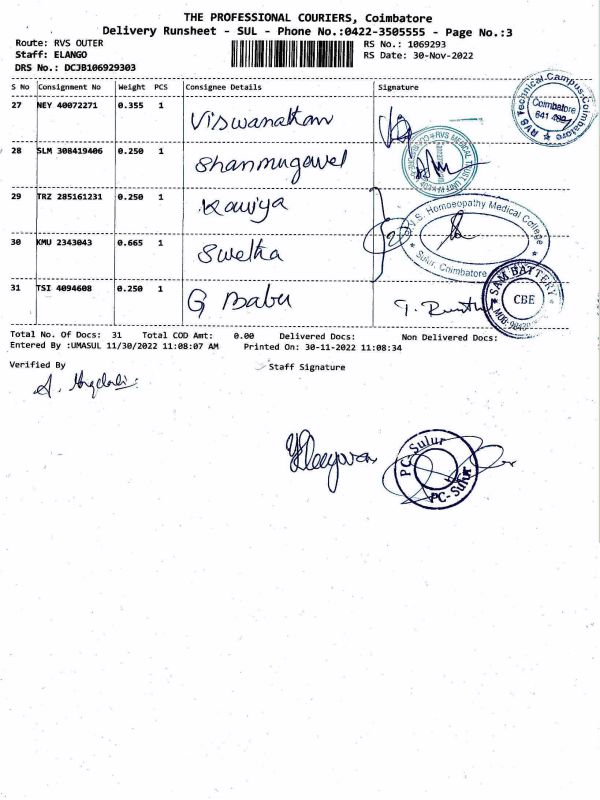 THE PROFESSIONAL COURIERS, Coimbatore
Delivery Runsheet - SUL - Phone No.:0422-3505555 - Page No.:3
Route: RVS OUTER
RS No.: 1069293
Staff: ELANGO
RS Date: 30-Nov-2022
DRS No.: DCJB106929303
S No Consignment No Weight PCS Consignee Details Signature
27 NEY 40072271 0.355 1 Viswanathan
28 SLM 308419406 0.250 1 Shanmugavel
29 TRZ 285161231 0.250 1 Kaviya
30 KMU 2343043 0.665 1 Swetha
31 TSI 4094608 0.250 1 G Babu
RVS Technical Campus-Coimbatore
Coimbatore
RVS MEDICAL TRUST
R.V.S. Homoeopathy Medical College
Sulur, Coimbatore
SAM BATTERY
CBE
Total No. Of Docs: 31 Total COD Amt: 0.00 Delivered Docs: Non Delivered Docs:
Entered By :UMASUL 11/30/2022 11:08:07 AM Printed On: 30-11-2022 11:08:34
Verified By
Staff Signature
PC-Sulur
PC-Sulur